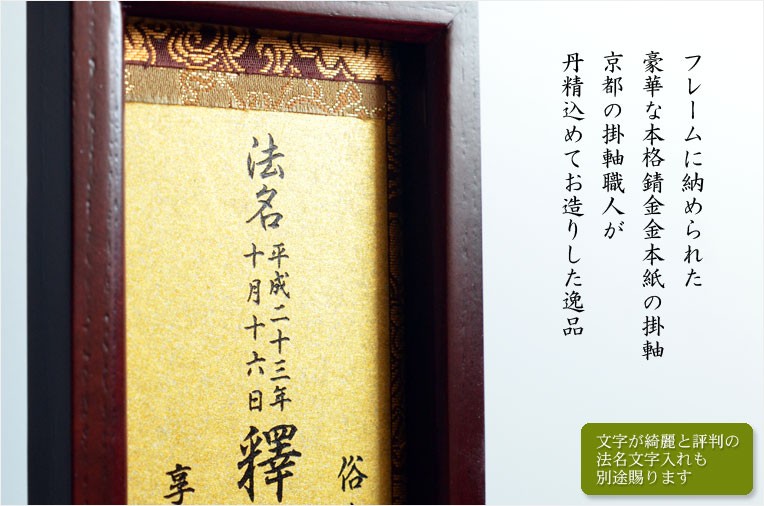 フレームに納められた
豪華な本格錆金金本紙の掛軸
京都の掛軸職人が
丹精込めてお造りした逸品
俗
法名
平成二十三年
十月十六日
釋
享
文字が綺麗と評判の
法名文字入れも
別途賜ります